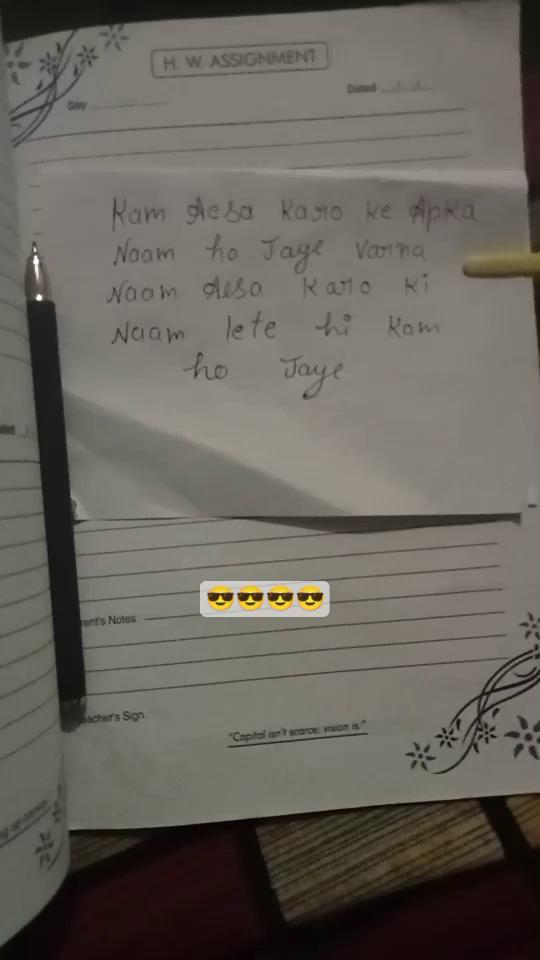 H. W. ASSIGNMENT
Dated
Day
Kam Aesa Karo ke Apka
Naam ho Jaye Varna
Naam Aesa Karo Ki
Naam lete hi Kam
ho Jaye
😎😎😎😎
rent's Notes
eacher's Sign.
"Capital isn't scarce; vision is."